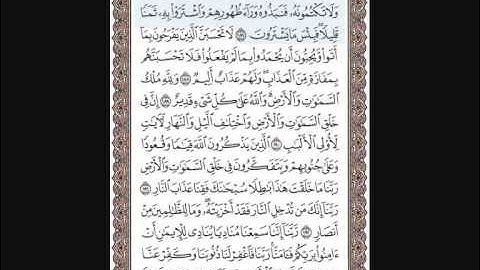 وَلَا تَكْتُمُونَهُۥ فَنَبَذُوهُ وَرَآءَ ظُهُورِهِمْ وَٱشْتَرَوْا۟ بِهِۦ ثَمَنًا
قَلِيلًا ۖ فَبِئْسَ مَا يَشْتَرُونَ ١٨٧ لَا تَحْسَبَنَّ ٱلَّذِينَ يَفْرَحُونَ بِمَآ
أَتَوا۟ وَّيُحِبُّونَ أَن يُحْمَدُوا۟ بِمَا لَمْ يَفْعَلُوا۟ فَلَا تَحْسَبَنَّهُم
بِمَفَازَةٍ مِّنَ ٱلْعَذَابِ ۖ وَلَهُمْ عَذَابٌ أَلِيمٌ ١٨٨ وَلِلَّهِ مُلْكُ
ٱلسَّمَٰوَٰتِ وَٱلْأَرْضِ ۗ وَٱللَّهُ عَلَىٰ كُلِّ شَىْءٍ قَدِيرٌ ١٨٩ إِنَّ فِى
خَلْقِ ٱلسَّمَٰوَٰتِ وَٱلْأَرْضِ وَٱخْتِلَٰفِ ٱلَّيْلِ وَٱلنَّهَارِ لَءَايَٰتٍ
لِّأُو۟لِى ٱلْأَلْبَٰبِ ١٩٠ ٱلَّذِينَ يَذْكُرُونَ ٱللَّهَ قِيَٰمًا وَقُعُودًا
وَعَلَىٰ جُنُوبِهِمْ وَيَتَفَكَّرُونَ فِى خَلْقِ ٱلسَّمَٰوَٰتِ وَٱلْأَرْضِ
رَبَّنَا مَا خَلَقْتَ هَٰذَا بَٰطِلًا سُبْحَٰنَكَ فَقِنَا عَذَابَ ٱلنَّارِ ١٩١
رَبَّنَآ إِنَّكَ مَن تُدْخِلِ ٱلنَّارَ فَقَدْ أَخْزَيْتَهُۥ ۖ وَمَا لِلظَّٰلِمِينَ مِنْ
أَنصَارٍ ١٩٢ رَّبَّنَآ إِنَّنَا سَمِعْنَا مُنَادِيًا يُنَادِى لِلْإِيمَٰنِ أَنْ
ءَامِنُوا۟ بِرَبِّكُمْ فَـَٔامَنَّا ۚ رَبَّنَا فَٱغْفِرْ لَنَا ذُنُوبَنَا وَكَفِّرْ عَنَّا